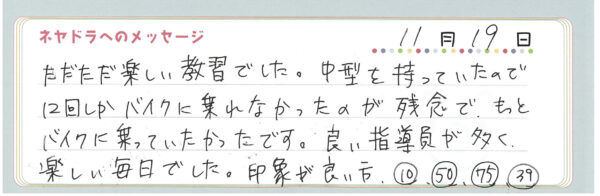 ネヤドラへのメッセージ 11月19日
ただただ楽しい教習でした。中型を持っていたので
12回しかバイクに乗れなかったのが残念で、もっと
バイクに乗っていたかったです。良い指導員が多く、
楽しい毎日でした。印象が良い方、⑩、㊿、75、㊴